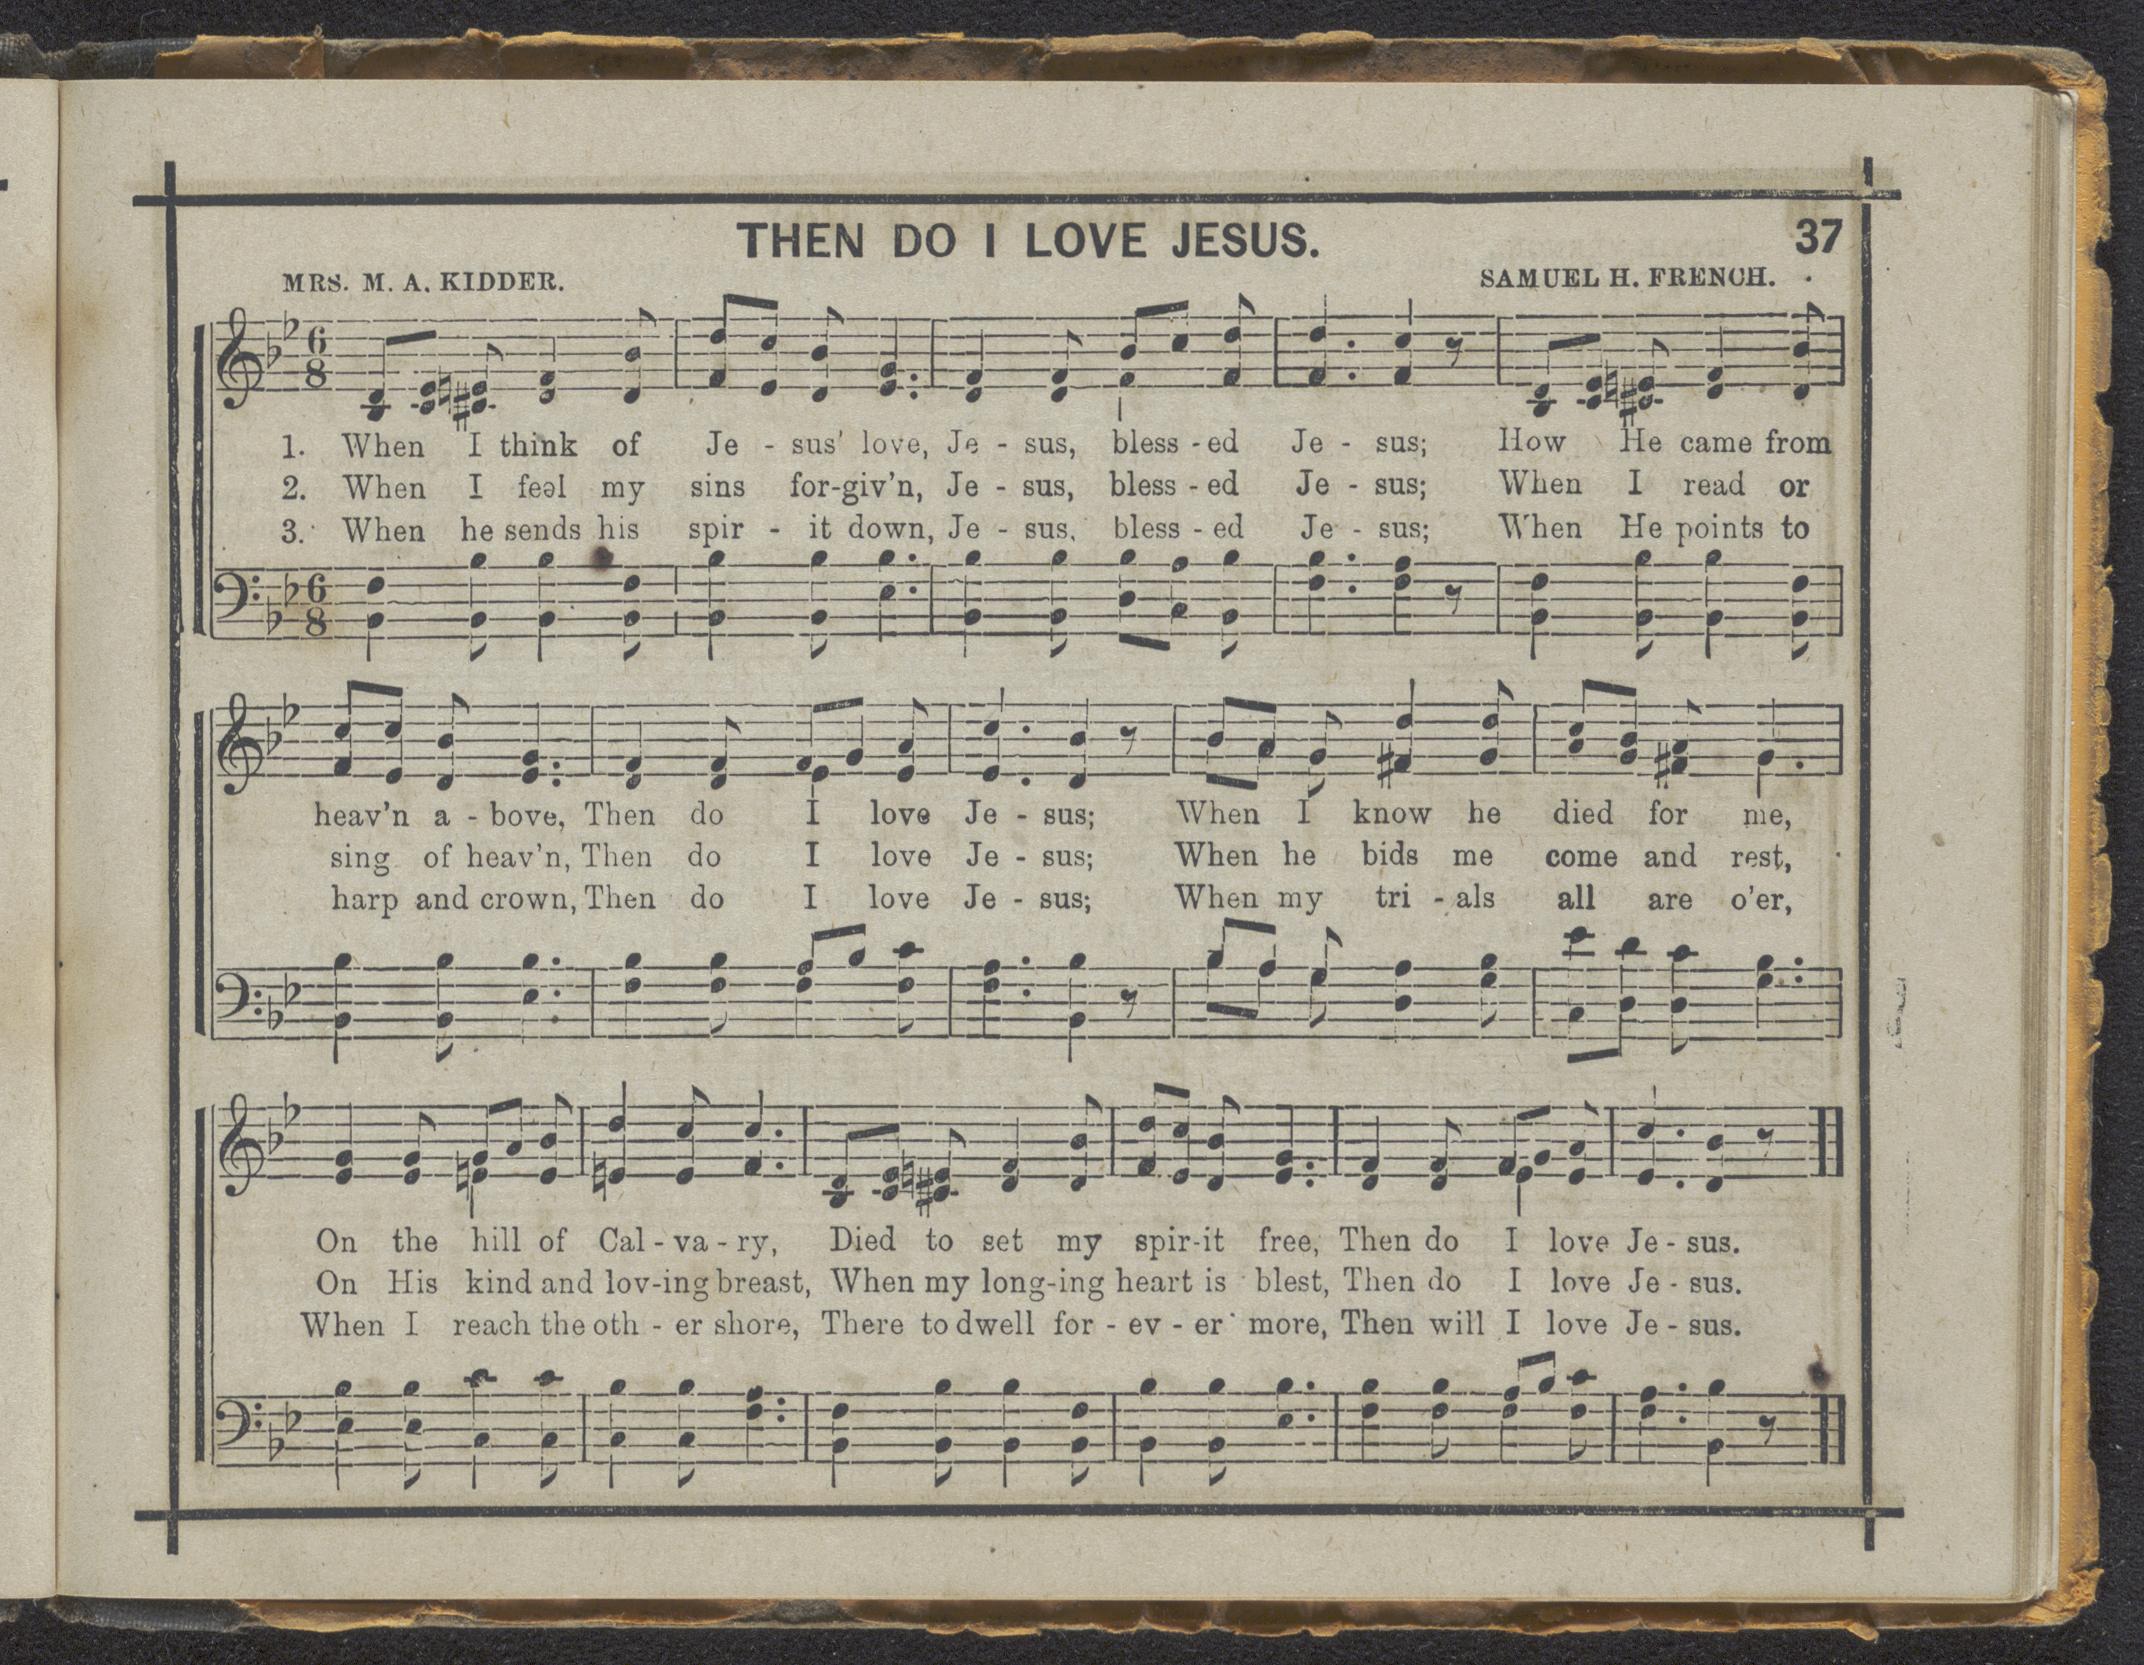 THEN DO I LOVE JESUS.
37
MRS. M. A. KIDDER.
SAMUEL H. FRENCH.
6
8
1. When I think of Je - sus' love, Je - sus, bless - ed Je - sus; How He came from
2. When I feel my sins for-giv'n, Je - sus, bless - ed Je - sus; When I read or
3. When he sends his spir - it down, Je - sus, bless - ed Je - sus; When He points to
6
8
heav'n a - bove, Then do I love Je - sus; When I know he died for me,
sing of heav'n, Then do I love Je - sus; When he bids me come and rest,
harp and crown, Then do I love Je - sus; When my tri - als all are o'er,
On the hill of Cal - va - ry, Died to set my spir-it free, Then do I love Je - sus.
On His kind and lov-ing breast, When my long-ing heart is blest, Then do I love Je - sus.
When I reach the oth - er shore, There to dwell for - ev - er more, Then will I love Je - sus.